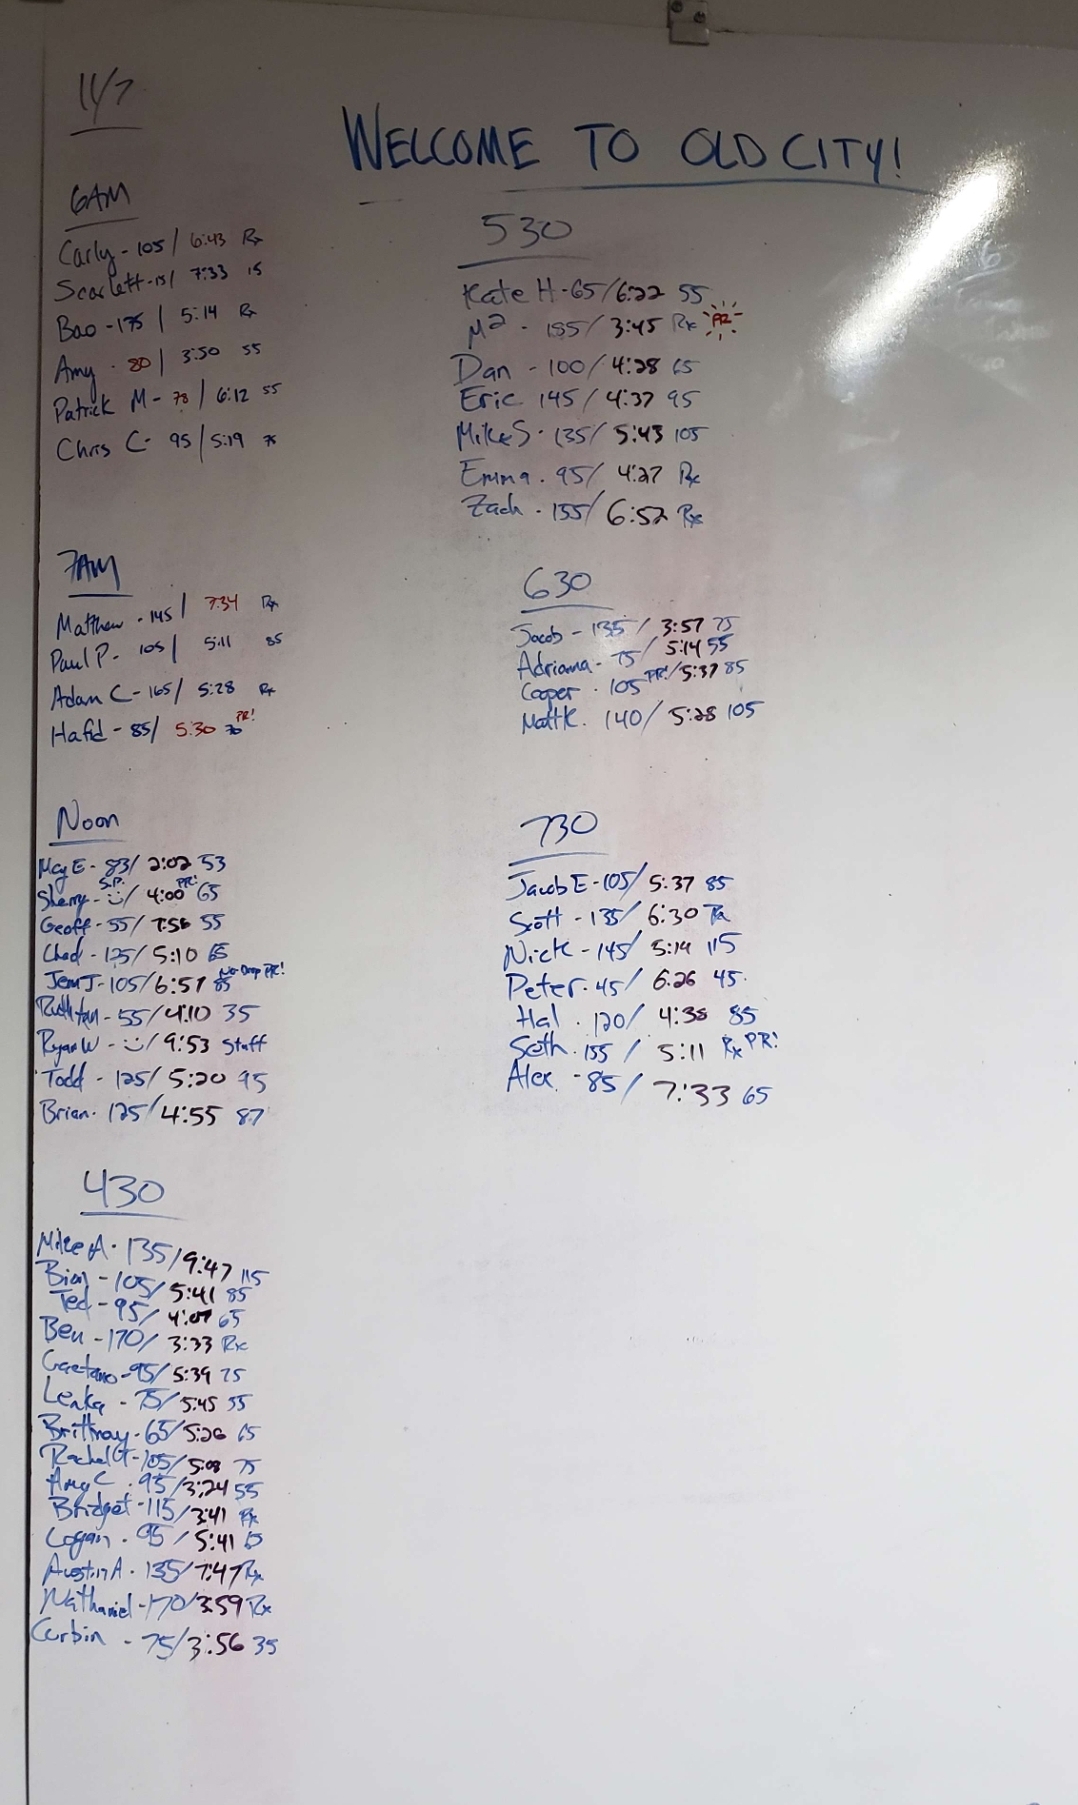 11/7
WELCOME TO OLD CITY!
6AM
Carly - 105 / 6:43 Rx
Scarlett - 15 / 7:33 15
Bao - 175 / 5:14 Rx
Amy - 80 / 3:50 55
Patrick M - 78 / 6:12 55
Chris C - 95 / 5:19 75
7AM
Matthew - 145 / 7:34 Rx
Paul P - 105 / 5:11 85
Adam C - 165 / 5:28 Rx
Hafid - 85 / 5:30 70 PR!
Noon
Meg E - 83 / 2:02 53
Sherry - S.P. :) / 4:00 PR! 65
Geoff - 55 / 7:56 55
Chad - 125 / 5:10 65
Jem J - 105 / 6:57 85 No Drop PR!
55 / 4:10 35
Ryan W - :) / 9:53 Staff
Todd - 125 / 5:20 95
Brian - 125 / 4:55 87
430
Mike A - 135 / 9:47 115
105 / 5:41 85
Ted - 95 / 4:07 65
Ben - 170 / 3:33 Rx
Gaetano - 95 / 5:39 75
Lenka - 75 / 5:45 55
Brittnay - 65 / 5:26 65
Rachel G - 105 / 5:08 75
Amy C - 95 / 3:24 55
Bridget - 115 / 3:41 Rx
Logan - 95 / 5:41
Austin A - 135 / 7:47 Rx
Nathaniel - 170 / 3:59 Rx
Corbin - 75 / 3:56 35
530
Kate H - 65 / 6:22 55
M² - 185 / 3:45 Rx PR
Dan - 100 / 4:28 65
Eric 145 / 4:37 95
Mike S - 135 / 5:43 105
Emma - 95 / 4:27 Rx
Zach - 155 / 6:52 Rx
630
Jacob - 135 / 3:57 75
Adrianna - 75 / 5:14 55
Cooper - 105 PR! / 5:37 85
Matt K. 140 / 5:28 105
730
Jacob E - 105 / 5:37 85
Scott - 135 / 6:30 Rx
Nick - 145 / 5:14 115
Peter - 45 / 6:26 45
Hal - 120 / 4:38 85
Seth - 155 / 5:11 Rx PR!
Alex - 85 / 7:33 65